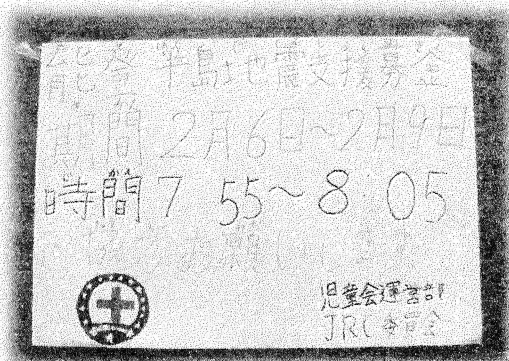 能登半島地震支援募金
期間 2月6日～2月9日
時間 7 55～8:05
お願いします
児童会運営部
JRC委員会